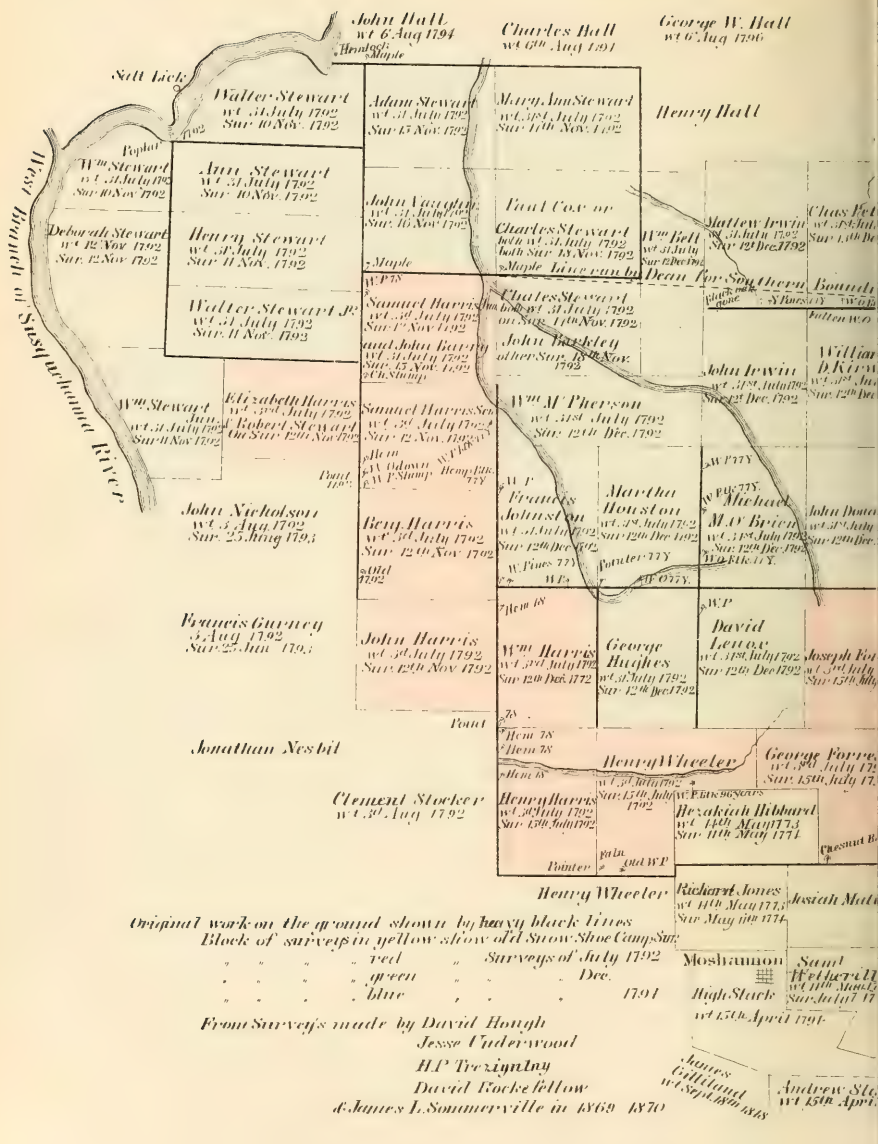 John Hall
wt 6 Aug 1794
Charles Hall
wt 6th Aug 1794
George W. Hall
wt 6 Aug 1796
Hemlock
Maple
Salt Lick
Walter Stewart
wt 31 July 1792
Sur 10 Nov. 1792
Adam Stewart
wt 31 July 1792
Sur 15 Nov. 1792
Mary Ann Stewart
wt 31st July 1792
Sur 14th Nov. 1792
Henry Hall
1792
Poplar
Wm Stewart
wt 31 July 1792
Sur 10 Nov 1792
Ann Stewart
wt 31 July 1792
Sur 10 Nov. 1792
John Vaughn
wt 31 July 1792
Sur. 16 Nov 1792
Paul Cox or
Charles Stewart
both wt 31 July 1792
both Sur 18 Nov. 1792
Wm Bell
wt 31 July
Sur 12 Dec 1792
Mattew Irwin
wt 31 July 1792
Sur 12t Dec. 1792
Chas Pet
wt 31st July
Sur 15th De
Deborah Stewart
wt 12 Nov 1792
Sur. 12 Nov 1792
Henry Stewart
wt 31 July 1792
Sur 11 Nov. 1792
Maple
Maple
Line run by Dean For Southern Bound
West Branch of Susquehanna River
Walter Stewart Jr.
wt 31 July 1792
Sur. 11 Nov. 1792
W.P 78
Samuel Harris
wt 3d July 1792
Sur 12 Nov 1792
and John Barry
wt 31 July 1792
Sur. 15 Nov. 1792
Ch Stump
Chales Stewart
on Sur 14th Nov. 1792
John Barkley
other Sur. 18th Nov.
1792
Black oak
gone
S Pines 77Y
Fallen W.O
John Irwin
wt 31st July 1792
Sur 12t Dec. 1792
William
D. Kirw
wt 31st Ju
Sur 12th De
Wm Stewart
Jun.
wt 31 July 1792
Sur 11 Nov 1792
Elizabeth Harris
wt 3rd July 1792
& Robert Stewart
On Sur 12th Nov 1792
Samuel Harris Sen
wt 3d July 1792
Sur 12 Nov. 1792
Wm McPherson
wt 31st July 1792
Sur. 12th Dec. 1792
Point
Hem
W.P Stump
Hemp. Blk.
77Y
W P 77Y
W P Blk 77Y.
John Nicholson
wt 3 Aug 1792
Sur. 25 June 1793
Benj. Harris
wt 3d July 1792
Sur 12th Nov 1792
Old
1792
W. P
Francis
Johnston
wt 31 July 1792
Sur 12th Dec 1792
W. Pines 77Y
W P.
Martha
Houston
wt 31st July 1792
Sur 12th Dec 1792
Pointer 77Y
W O 77Y.
Michael
M. O' Brien
wt 31st July 1792
Sur 12th Dec 1792
W.O Blk 77Y.
John Dona
wt 31st July
Sur 12th Dec.
Francis Gurney
3 Aug 1792
Sur. 25 Jun 1793
John Harris
wt 3d July 1792
Sur 12th Nov 1792
Hem 78
Wm Harris
wt 3rd July 1792
Sur 12th Dec. 1772
78
George
Hughes
wt 31 July 1792
Sur 12th Dec. 1792
W.P
David
Lenox
wt 31st July 1792
Sur 12th Dec 1792
Joseph For
wt 3rd July
Sur 15th July
Point
Jonathan Nesbit
Hem 78
Hem 78
Hem 78
Henry Wheeler
wt 3d July 1792
Sur. 15th July
1792
George Forre
wt 3rd July 179
Sur. 15th July 17
Clement Stocker
wt 3d Aug 1792
Henry Harris
wt 3d July 1792
Sur 15th July 1792
W. P. Blk 96 Years
Hezakiah Hibbard
wt 14th May 1773
Sur 11th May 1774
Chesnut
Pointer
Faln
Old W P
Henry Wheeler
Richard Jones
wt 14th May 1773
Sur May 11th 1774
Josiah Mat
Original work on the ground shown by heavy black lines
Block of surveys in yellow show old Snow Shoe Camp Sur.
" " " red " Surveys of July 1792
" " " green " " Dec.
" " " blue " " " 1794
Moshannon
High Stack
wt 15th April 1794
Saml
Wetherill
wt 14th May
Sur July 7 17
From Surveys made by David Hough
Jesse Underwood
H.P Treziyulny
David Rockefellow
& James L. Sommerville in 1869 1870
James
Gilliland
wt Sept. 18th 1848
Andrew Sto
wt 15th Apri